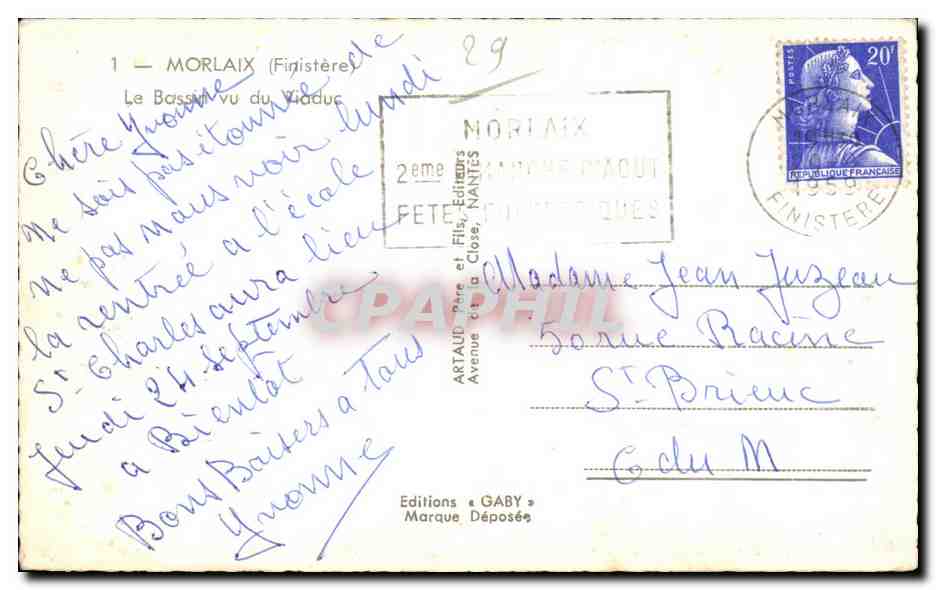 1 — MORLAIX (Finistère)
Le Bassin vu du Viaduc
29
Chère Yvonne
Ne sois pas étonnée de
ne pas nous voir lundi
la rentrée a l'école
St Charles aura lieu
Jeudi 24 septembre
a Bientôt
Bons Baisers a tous
Yvonne
MORLAIX
2eme DIMANCHE D'AOUT
FETES
ARTAUD Père et Fils, Editeurs
Avenue de la Close, NANTES
Editions « GABY »
Marque Déposée
POSTES
20F
REPUBLIQUE FRANÇAISE
1959
FINISTERE
Madame Jean Juzeau
50 rue Racine
St Brieuc
C du N
CPAPHIL